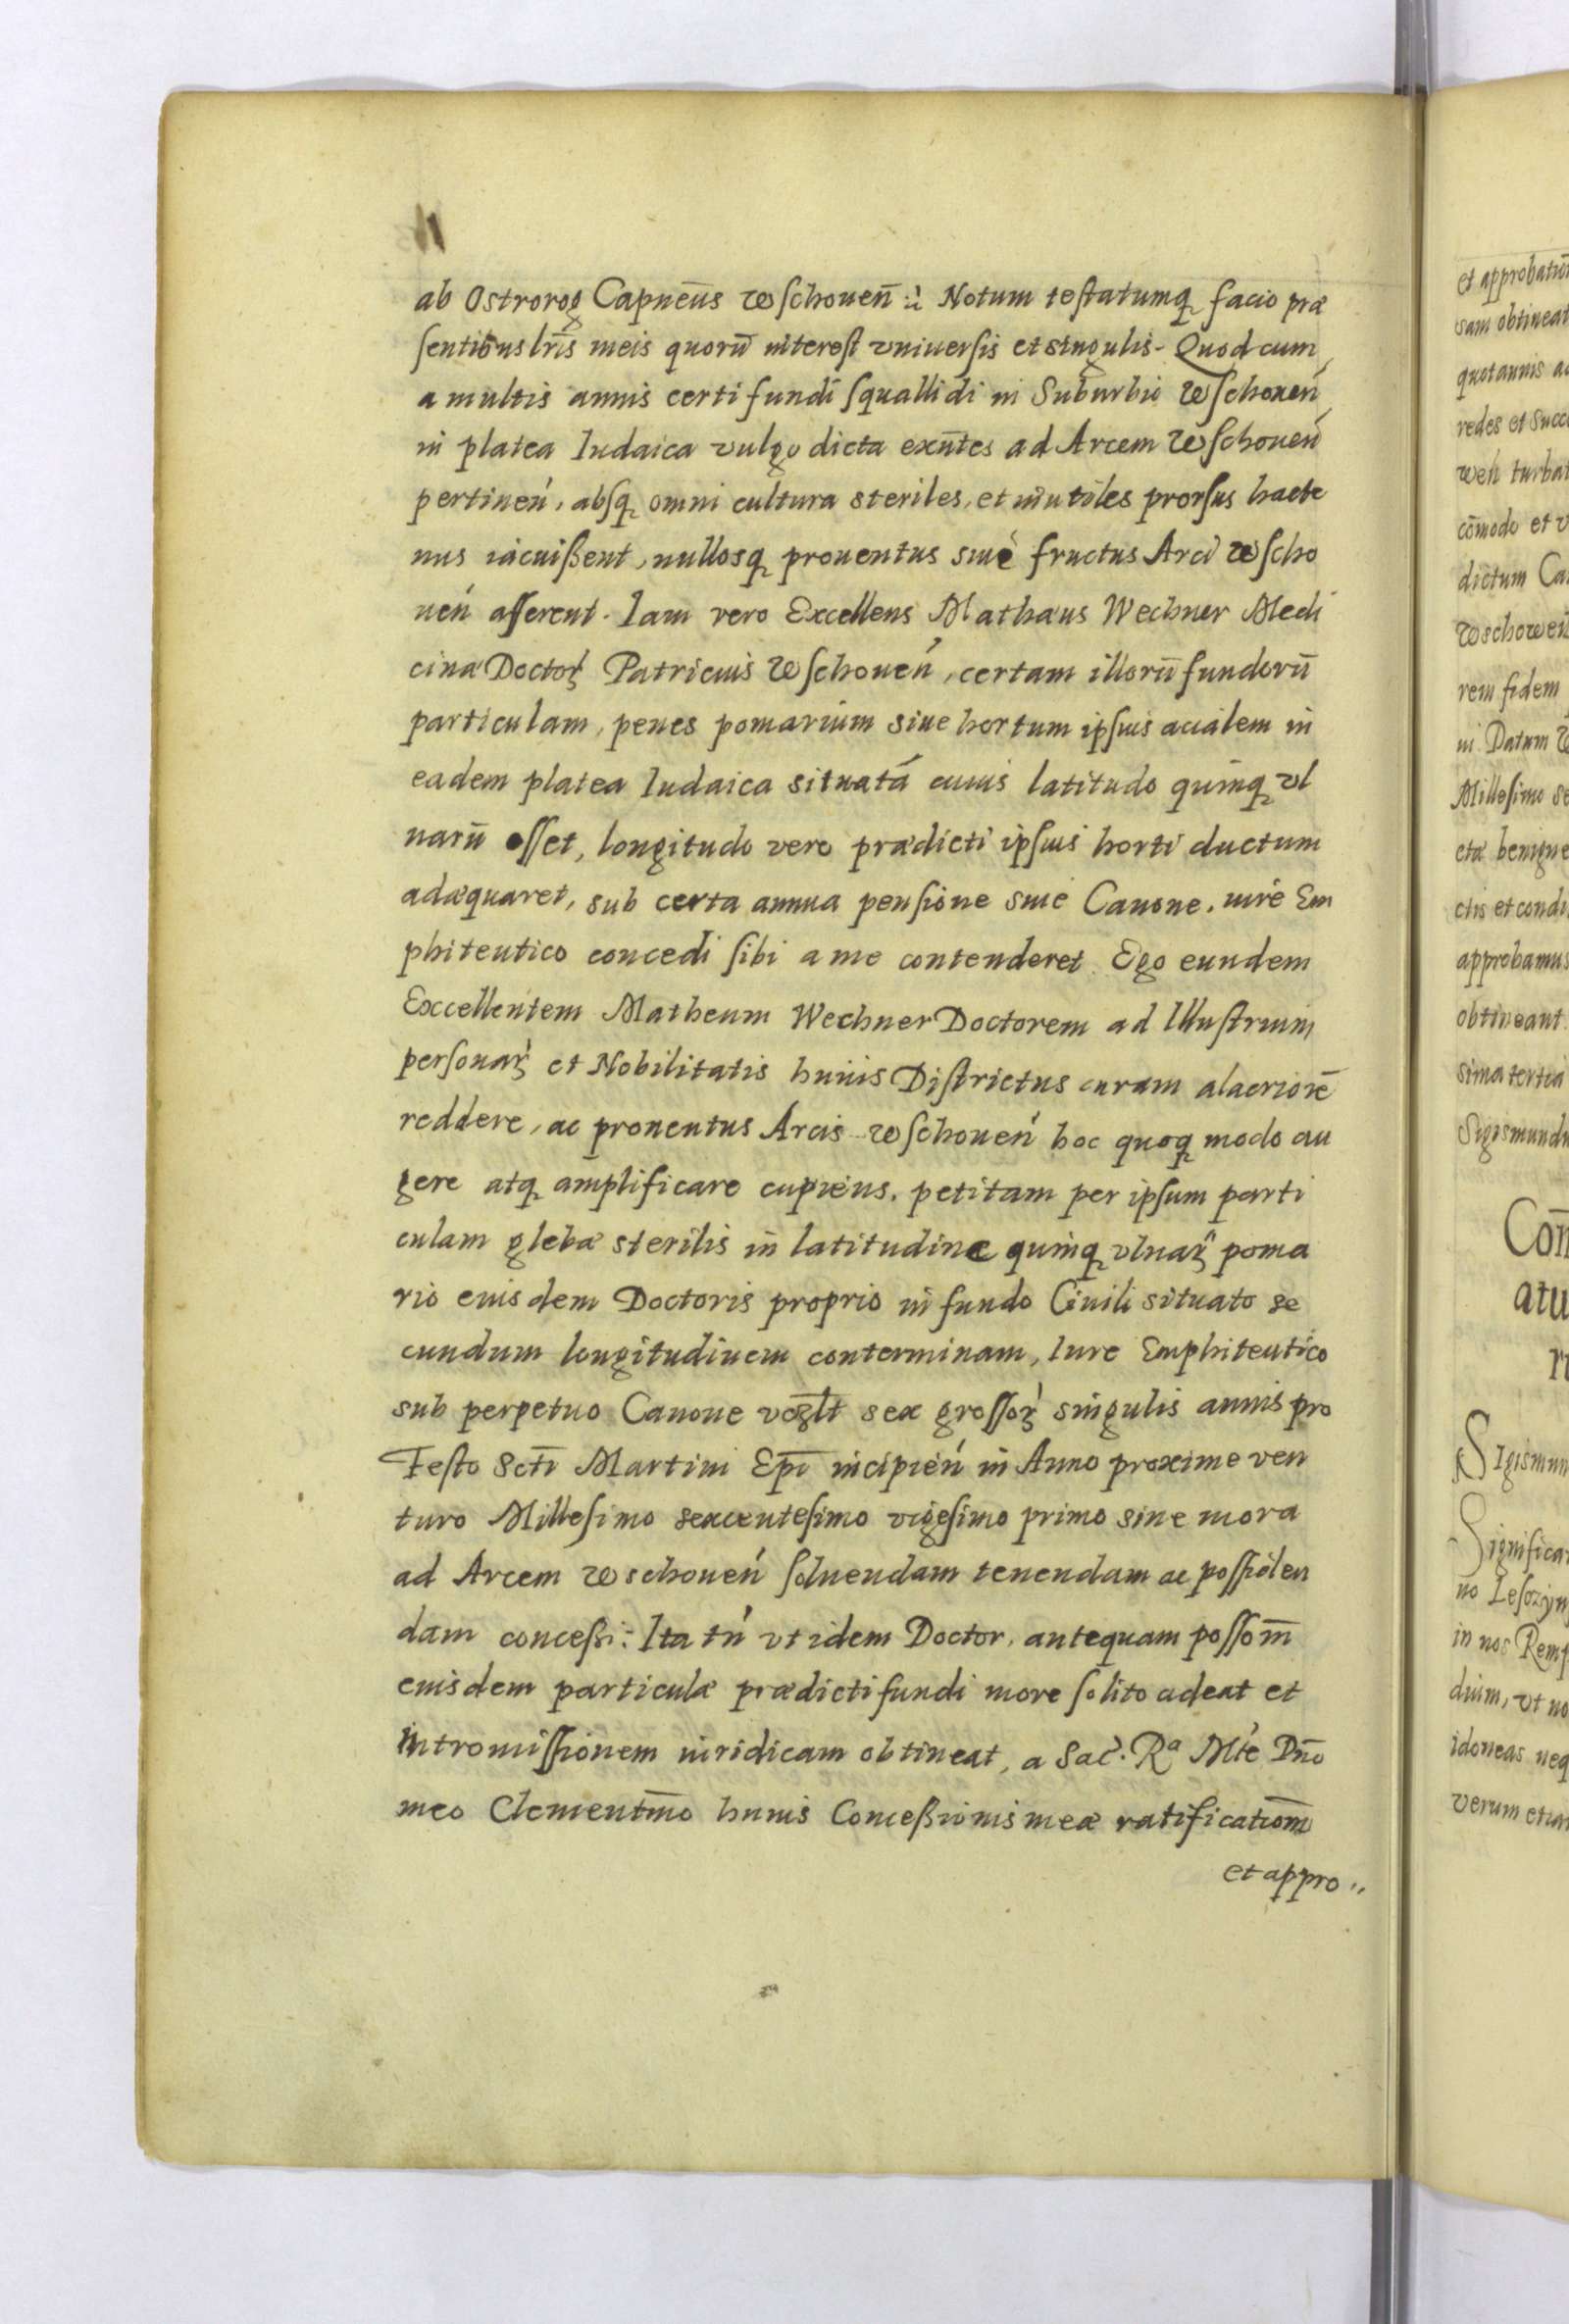 ab Ostrorog Capneūs Wschoueñ: Notum testatumq facio præ
sentibus lr̄is meis quorū interest vniuersis et singulis. Quod cum
a multis annis certi fundi squallidi in Suburbio Wschoueń
in platea Iudaica vulgo dicta exn̄tes ad Arcem Wschoueń
pertineń, absq omni cultura steriles, et inutiles prorsus hacte
nus iacuißent, nullosq prouentus siue fructus Arci Wscho
ueń afferent. Iam vero Excellens Mathæus Wechner Medi
cinæ Doctor Patricius Wschoueń, certam illorū fundorū
particulam, penes pomarium siue hortum ipsius acialem in
eadem platea Iudaica situatá cuius latitudo quinq vl
narū esset, longitudo vero prædicti ipsius horti ductum
adæquaret, sub certa annua pensione siue Canone, iure Em
phiteutico concedi sibi a me contenderet. Ego eundem
Excellentem Matheum Wechner Doctorem ad Illustrium
personaꝝ et Nobilitatis huius Districtus curam alacriorē
reddere, ac prouentus Arcis Wschoueń hoc quoq modo au
gere atq amplificare cupiens, petitam per ipsum parti
culam glebæ sterilis in latitudine quinq vlnaꝝ poma
rio eiusdem Doctoris proprio in fundo Ciuili situato se
cundum longitudinem conterminam, Iure Emphiteutico
sub perpetuo Canone sex grossoꝝ singulis annis pro
Festo Sctī Martini Epī incipień in Anno proxime ven
turo Millesimo sexcentesimo vigesimo primo sine mora
ad Arcem Wschoueń soluendam tenendam ac possiden
dam conceßi: Ita tń vt idem Doctor, antequam possom̄
eiusdem particulæ prædicti fundi more solito adeat et
intromissionem iuridicam obtineat, a Sac. Rª Mte Dn̄o
meo Clementm̄o huius Conceßionis meæ ratificatiom̄
et appro„
et approbatiō
sam obtineat
quotannis a
redes et Succe
weń turba
cōmodo et v
dictum Ca
Wschoweń
rem fidem
ni Datum
Millesimo se
etæ benigne
ctis et condi
approbamus
obtineant
sima tertia
Sigismund
Con
atu
r
Sigismun
Significa
no Lesozyn
in nos Remp
dium, vt no
idoneas neq
verum etia